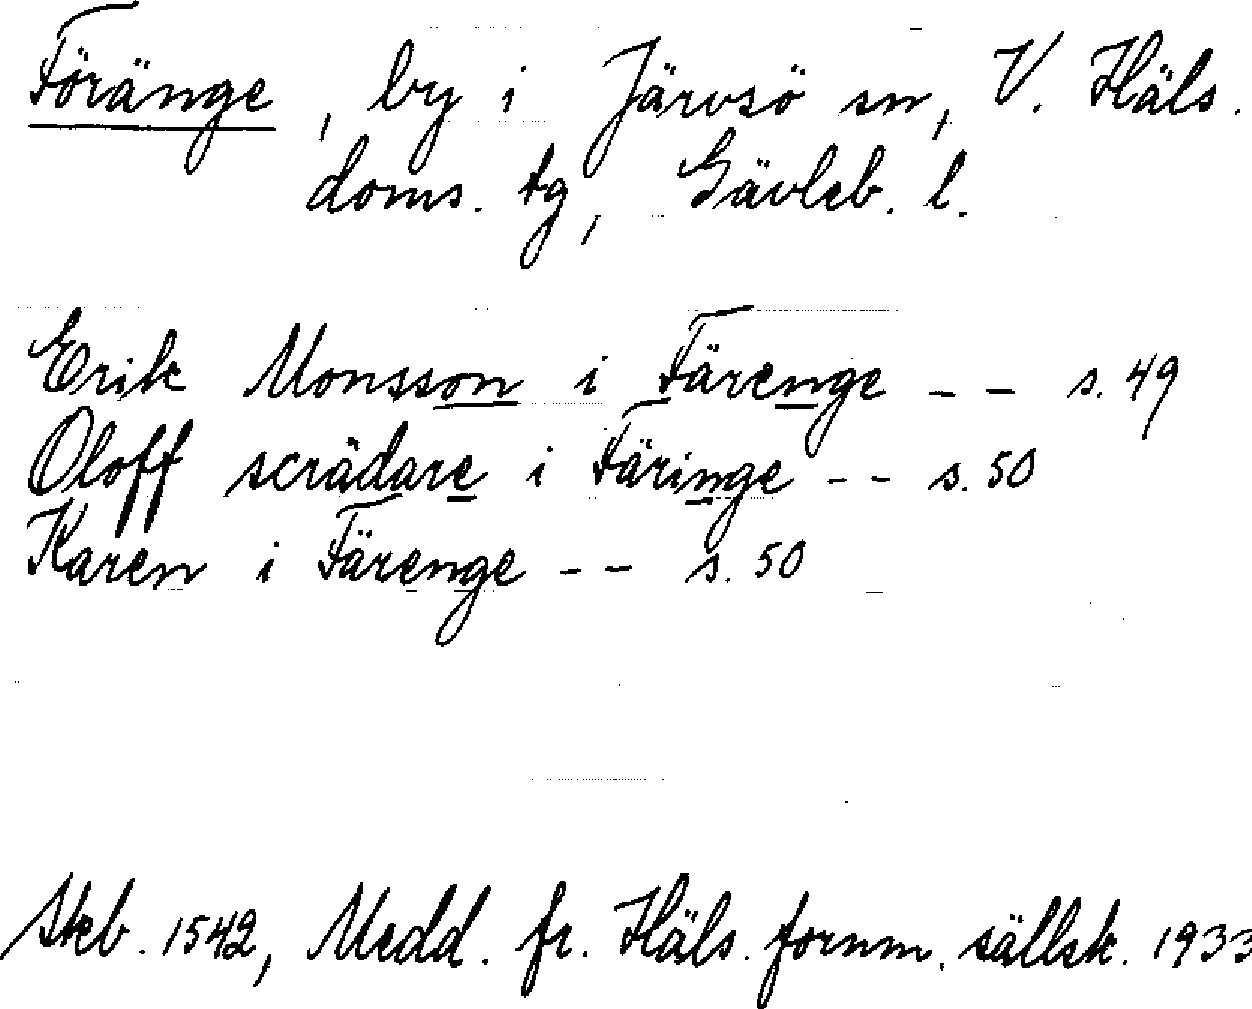 Föränge, by i Järvsö sn, V. Häls.
doms. tg, Gävleb. l.
Erik Monsson i Färenge -- s. 49
Oloff scrädare i Färinge -- s. 50
Karen i Färenge -- s. 50
Skb. 1542, Medd. fr. Häls. fornm. sällsk. 1933